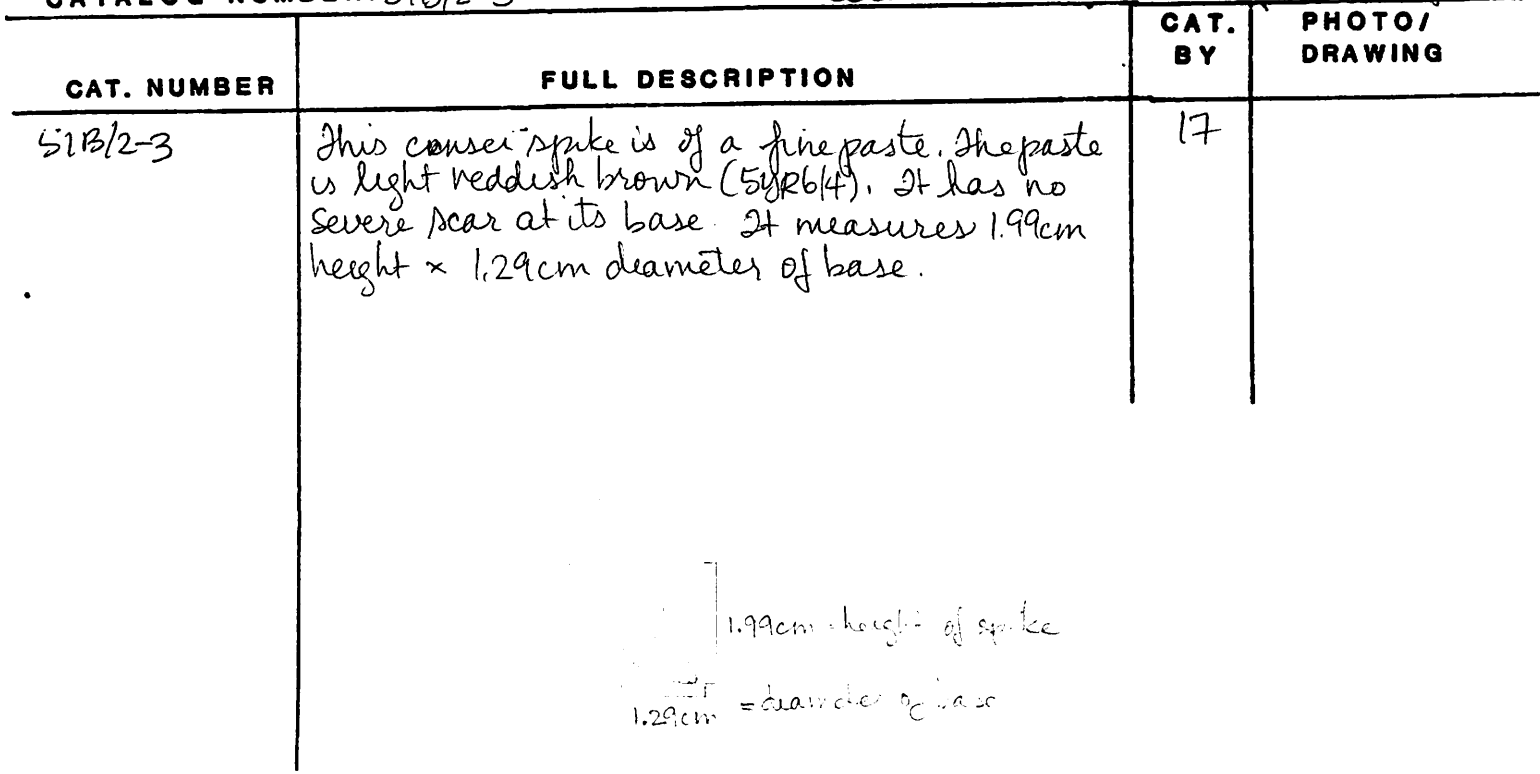 CATALOG NUMBER: 51B/2-3
CAT. NUMBER FULL DESCRIPTION CAT. BY PHOTO/ DRAWING
51B/2-3 17
This censer spike is of a fine paste. The paste
is light reddish brown (5YR6/4). It has no
severe scar at its base. It measures 1.99cm
height × 1.29cm diameter of base.
1.99cm = height of spike
1.29cm = diameter of base